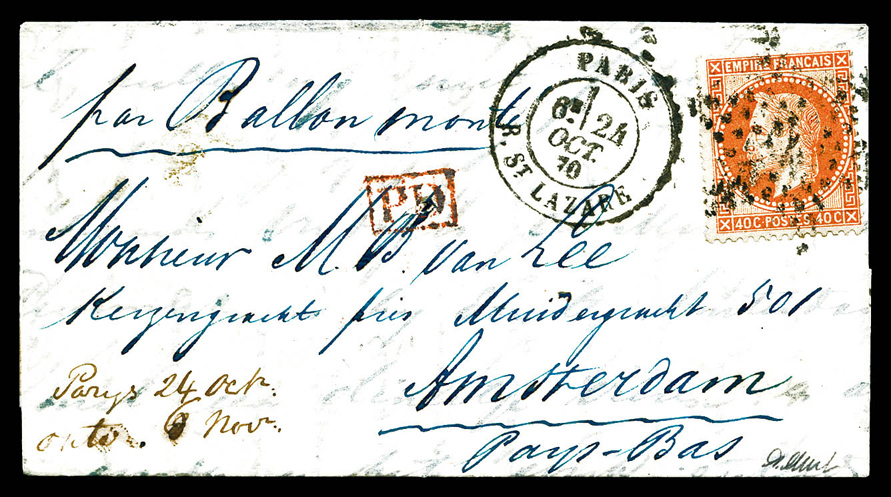 par Ballon monté
PARIS
6E 24
OCT.
70
R. ST LAZARE
EMPIRE FRANÇAIS
40 C - POSTES - 40 C
PD
Monsieur M. B van Lee
Keizersgracht près Muidergracht 501
Amsterdam
Pays-Bas
Parys 24 Oct.
ontv. 6 Nov.